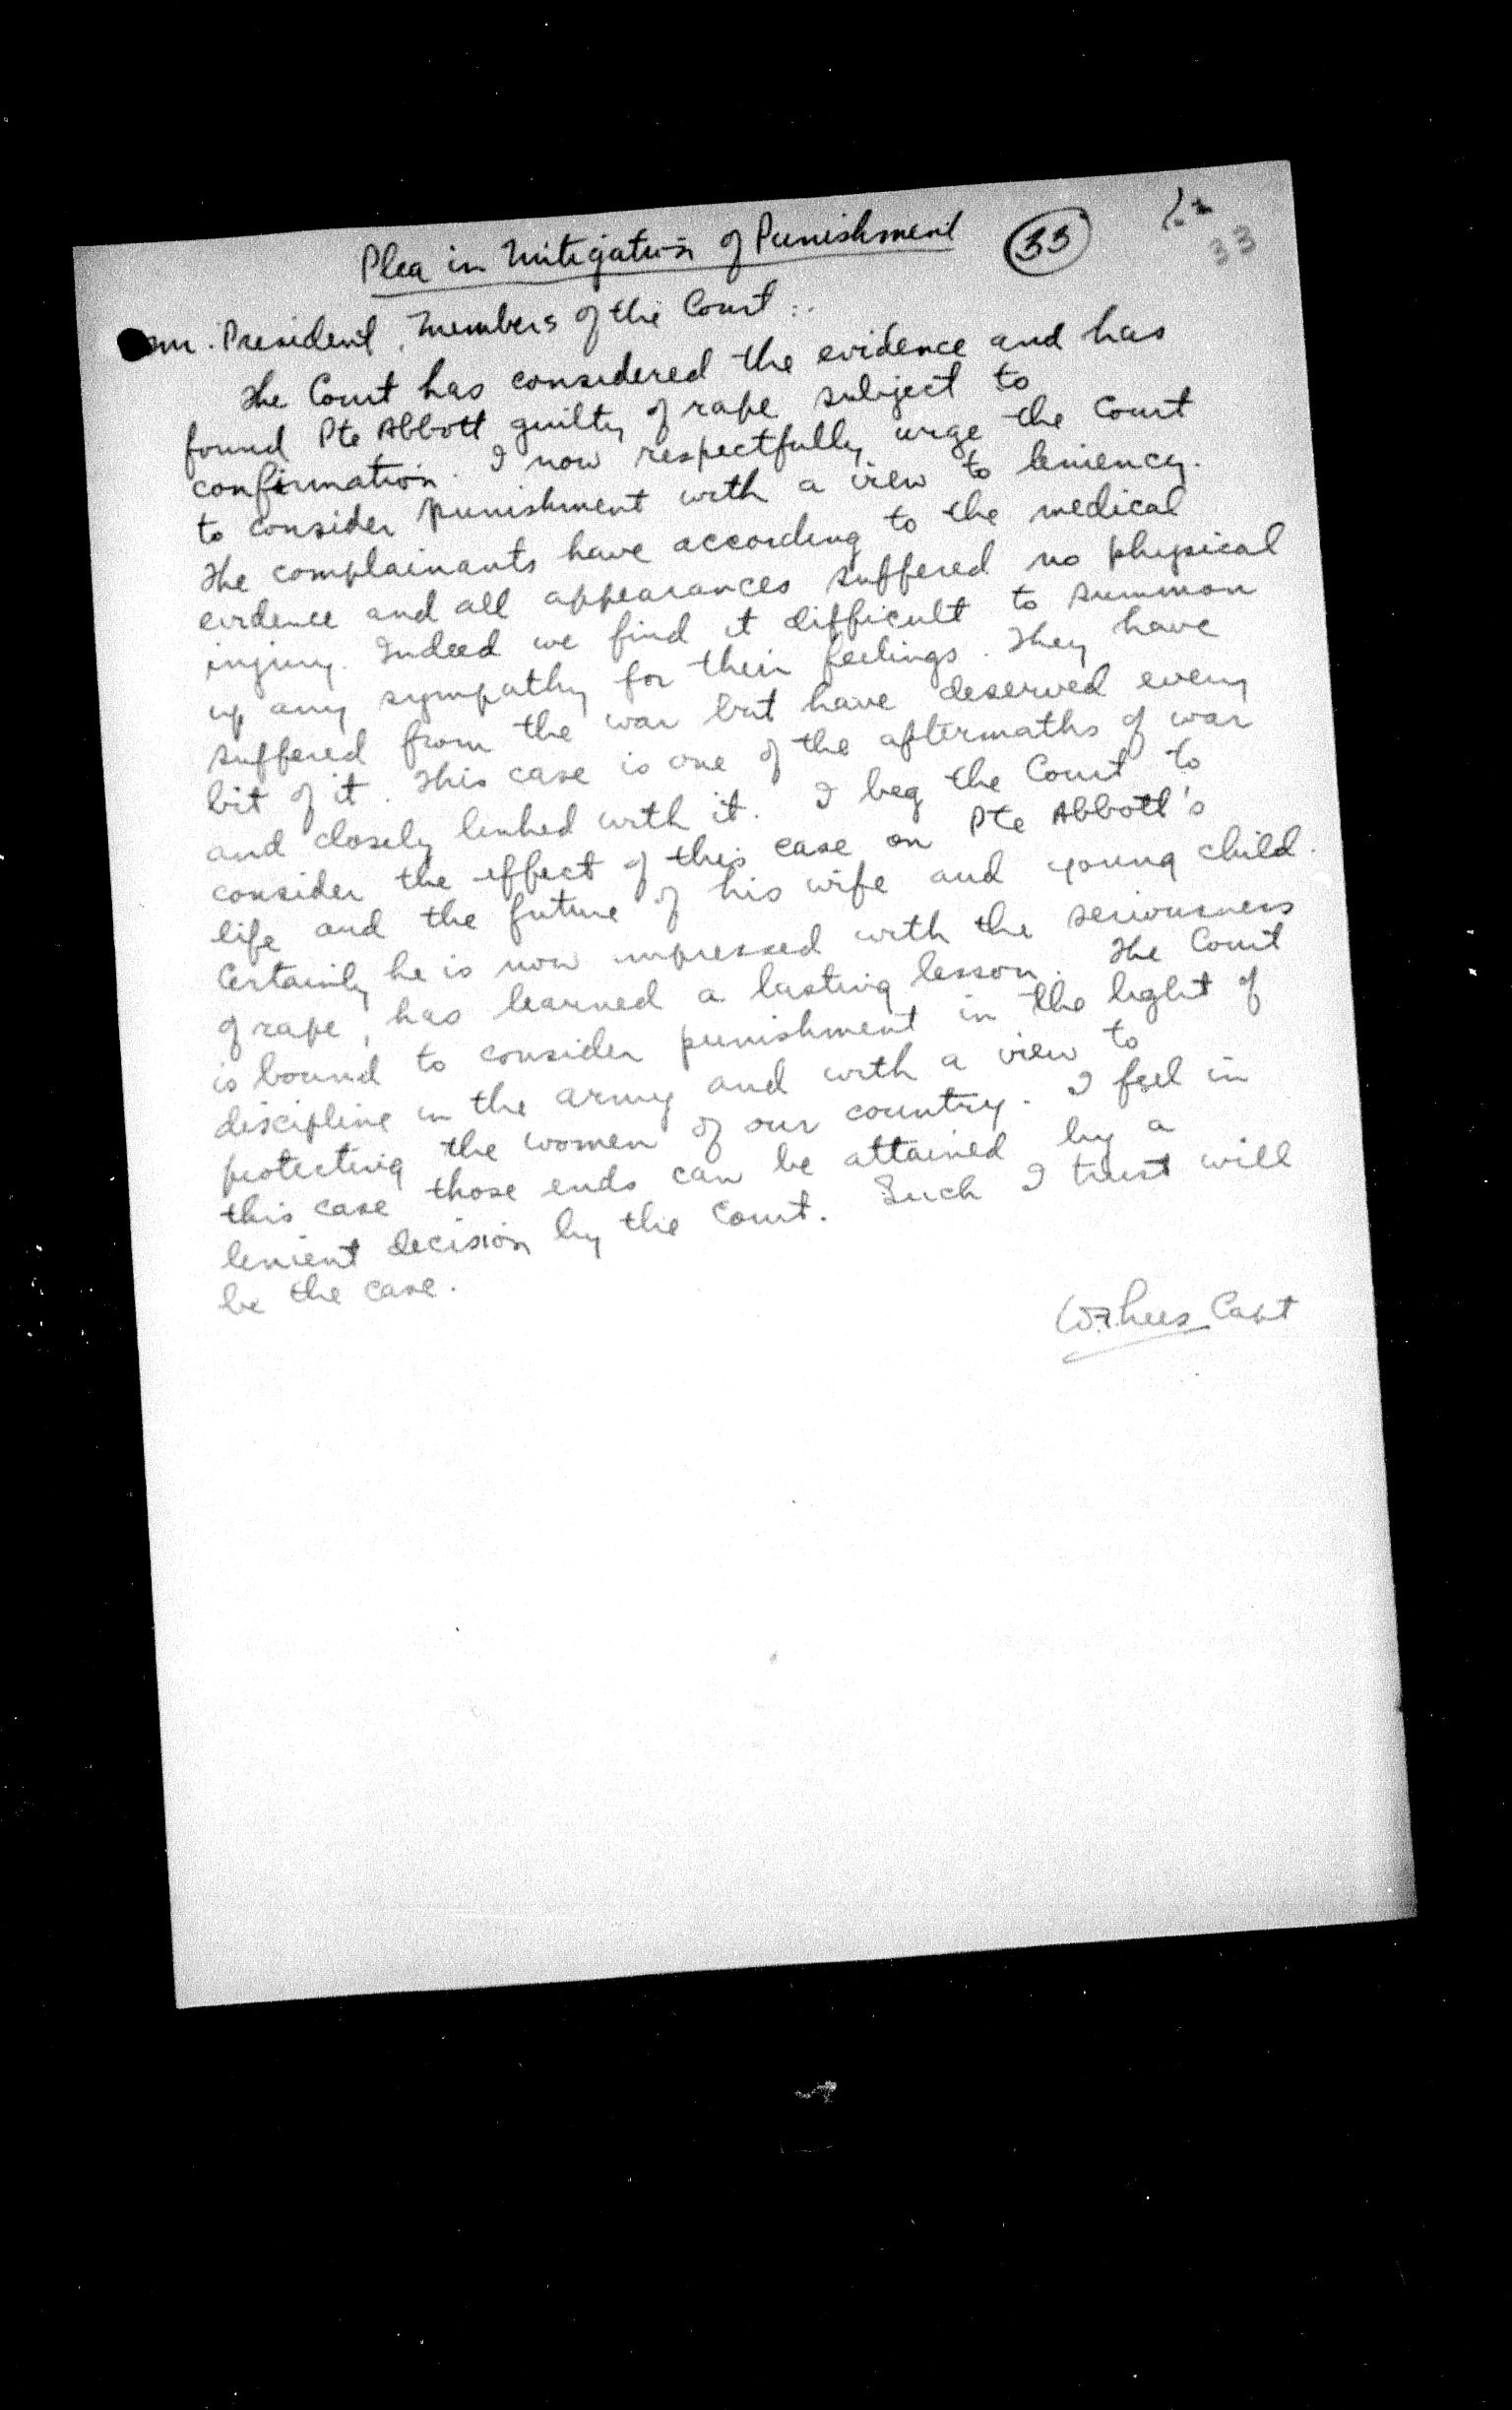 Plea in Mitigation of Punishment
33
33
Mr. President, Members of the Court:.
The Court has considered the evidence and has
found Pte Abbott guilty of rape subject to
confirmation. I now respectfully urge the Court
to consider punishment with a view to leniency.
The complainants have according to the medical
evidence and all appearances suffered no physical
injury. Indeed we find it difficult to summon
up any sympathy for their feelings. They have
suffered from the war but have deserved every
bit of it. This case is one of the aftermaths of war
and closely linked with it. I beg the Court to
consider the effect of this case on Pte Abbott's
life and the future of his wife and young child.
Certainly he is now impressed with the seriousness
of rape, has learned a lasting lesson. The Court
is bound to consider punishment in the light of
discipline in the army and with a view to
protecting the women of our country. I feel in
this case those ends can be attained by a
lenient decision by the Court. Such I trust will
be the case.
Capt